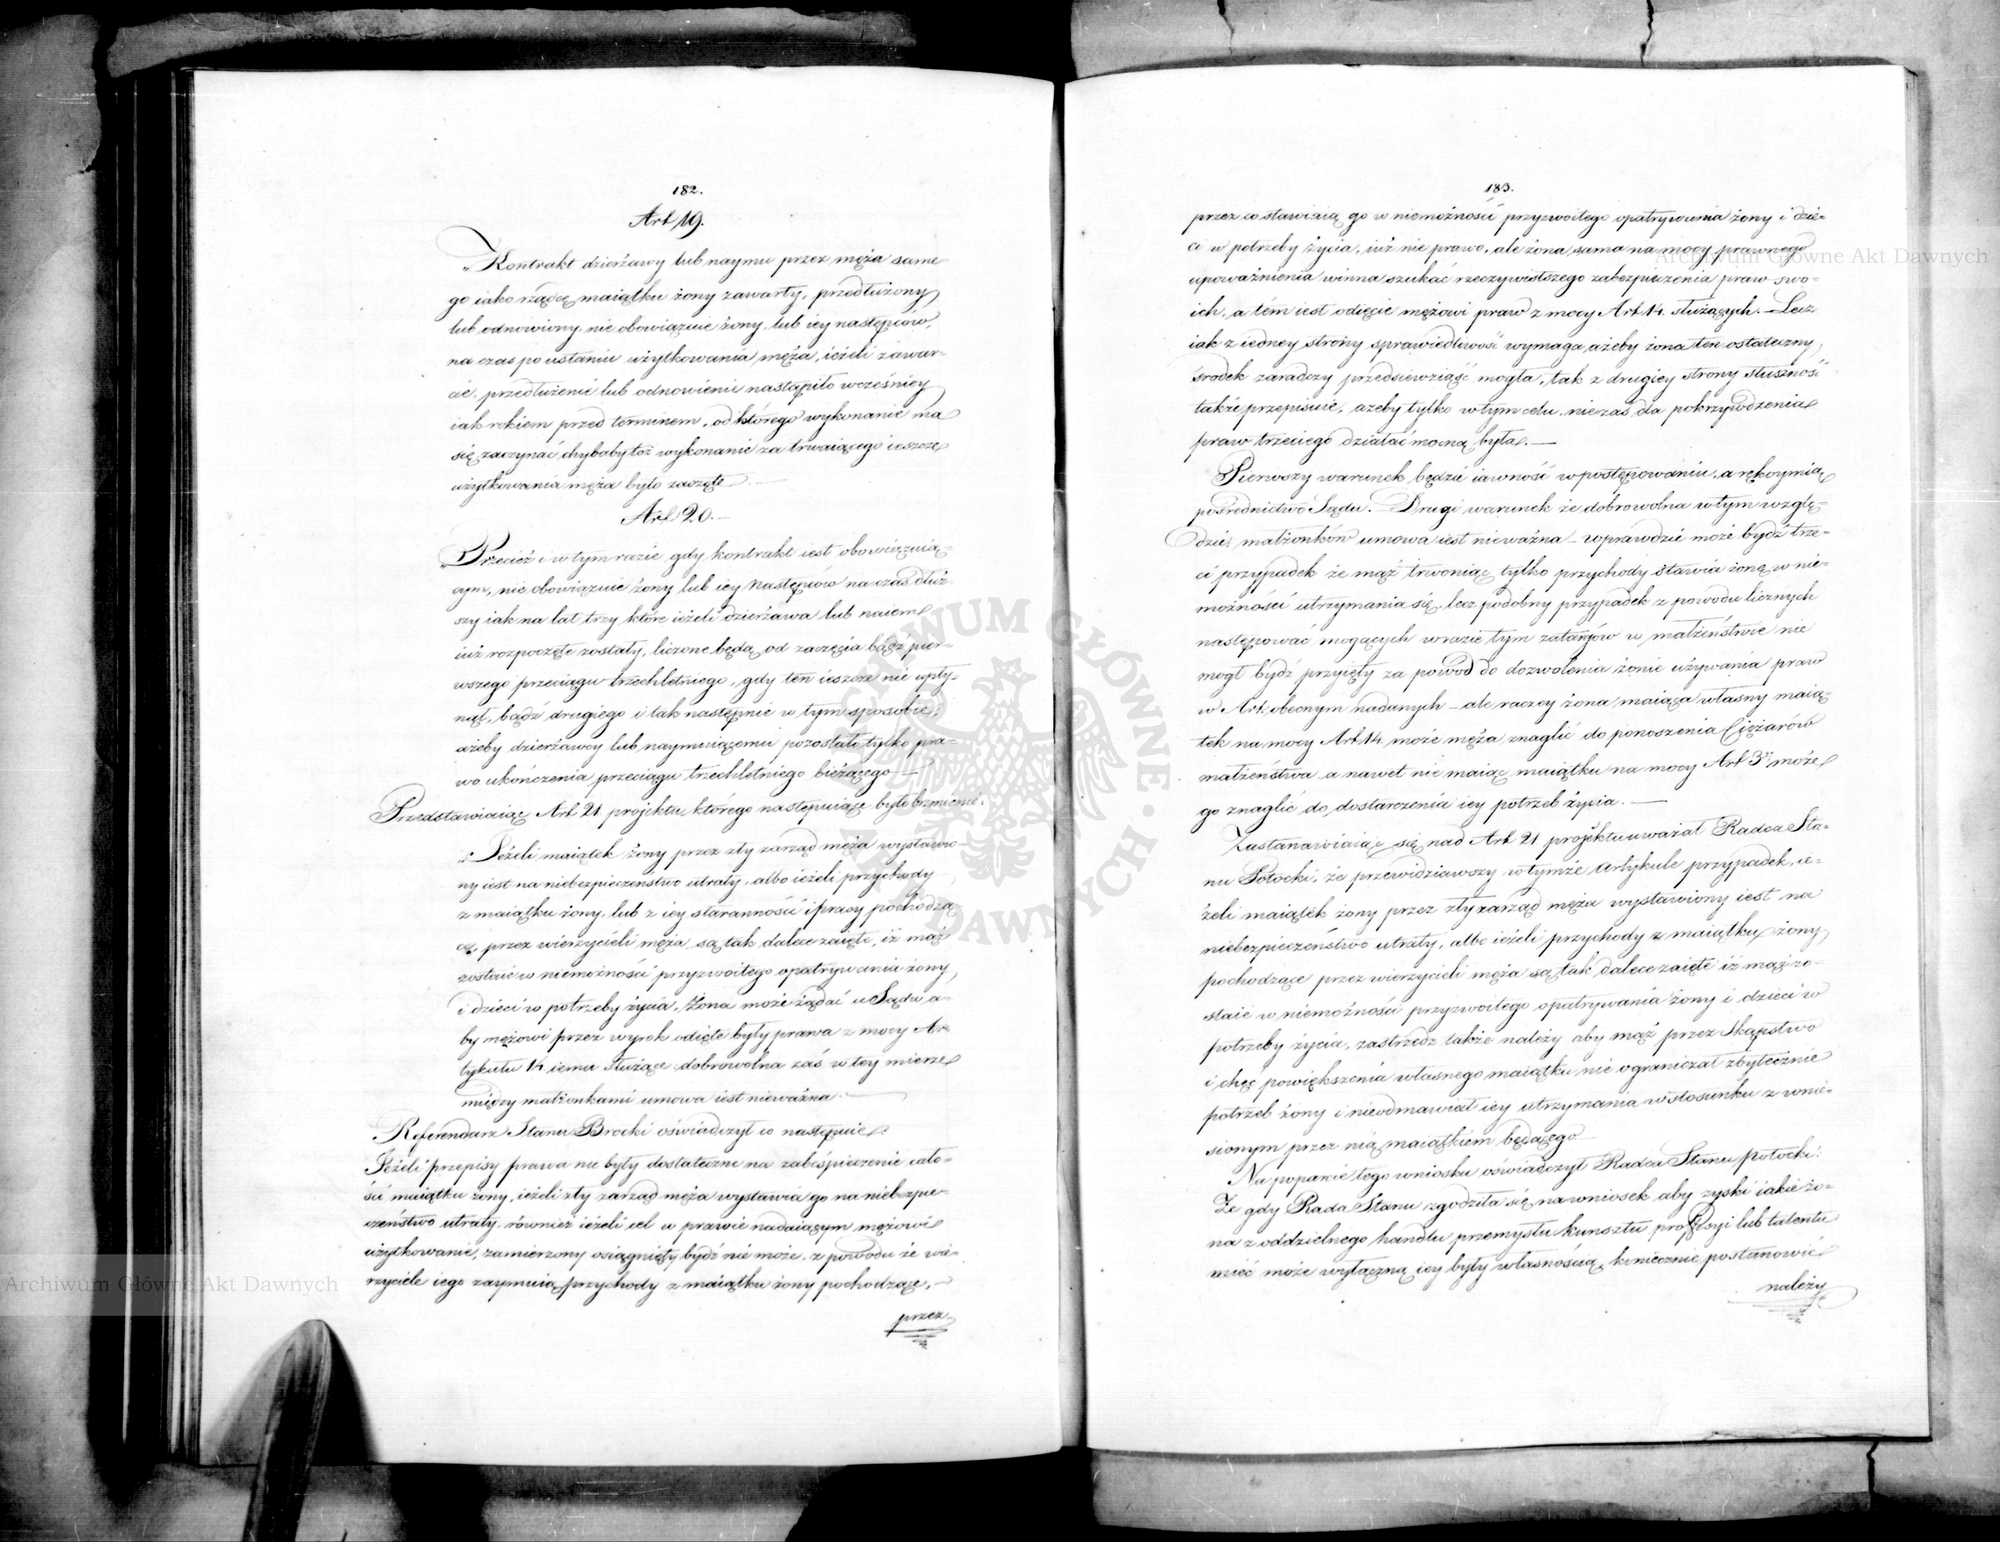 182.
Art 19.
„Kontrakt dzierżawy lub naymu przez męża same-
go iako rządcę maiątku żony zawarty, przedłużony
lub odnowiony nie obowiązuie żony lub iey następców,
na czas po ustaniu użytkowania męża, ieżeli zawar-
cie, przedłużenie lub odnowienie nastąpiło wcześniey
iak rokiem przed terminem, od którego wykonanie ma
się zaczynać chybaby toż wykonanie za trwaiącego ieszcze
użytkowania męża było zaczęte. —
Art 20. —
„Przecież i w tym razie gdy kontrakt iest obowiązuią-
cym, nie obowiązuie żony lub iey następców na czas dłuż-
szy iak na lat trzy które ieżeli dzierżawa lub naiem
iuż rozpoczęte zostały, liczone będą od zaczęcia bądź pier-
wszego przeciągu trzechletniego, gdy ten ieszcze nie upły-
nął, bądź drugiego i tak następnie w tym sposobie;
ażeby dzierżawcy lub naymuiącemu pozostało tylko pra-
wo ukończenia przeciągu trzechletniego bieżącego —
Przedstawiaiąc Art 21 projektu którego następuiące było brzmienie.
„Jeżeli maiątek żony przez zły zarząd męża wystawio-
ny iest na niebezpieczenstwo utraty, albo ieżeli przychody
z maiątku żony, lub z iey staranności i pracy pochodzą-
ce, przez wierzycieli męża są tak dalece zaięte, iż mąż
zostaie w niemożności przyzwoitego opatrywania żony,
i dzieci w potrzeby życia, Żona może żądać u Sądu a-
by mężowi przez wyrok odięte były prawa z mocy Ar-
tykułu 14 iemu służące, dobrowolna zaś w tey mierze
między małżonkami umowa iest nieważna. —
Referendarz Stanu Brocki oświadczył co następuie:
Jeżeli przepisy prawa nie były dostateczne na zabespieczenie cało-
ści maiątku żony, ieżeli zły zarząd męża wystawia go na niebezpie-
czeństwo utraty, również ieżeli cel w prawie nadaiącym mężowi
użytkowanie, zamierzony osiągnięty bydź nie może, z powodu że wie-
rzyciele iego zaymuią przychody z maiątku żony pochodzące, —
przez
183.
przez co stawiaią go w niemożności przyzwoitego opatrywania żony i dzie-
ci w potrzeby życia, iuż nie prawo, ale żona sama na mocy prawnego
upoważnienia winna szukać rzeczywistszego zabezpieczenia praw swo-
ich, a tém iest odięcie mężowi praw z mocy Art 14 służących. — Lecz
iak z iedney strony sprawiedliwość wymaga ażeby żona ten ostateczny
środek zaradczy przedsiewziąść mogła, tak z drugiey strony słuszność
także przepisuie, ażeby tylko w tym celu, nie zaś dla pokrzywdzenia
praw trzeciego działać mocną była. —
Pierwszy warunek będzie iawność w postępowaniu, a rękoymią
pośrednictwo Sądu. — Drugi warunek że dobrowolna w tym wzglę-
dzie małżonków umowa iest nieważna — wprawdzie może bydź trze-
ci przypadek że mąż trwoniąc tylko przychody stawia żonę w nie-
możności utrzymania się, lecz podobny przypadek z powodu licznych
następować mogących w razie tym zatargów w małżeństwie nie
mogł bydź przyięty za powod do dozwolenia żonie używania praw
w Art. obecnym nadanych — ale raczey żona maiąca własny maią-
tek na mocy Art 14 może męża znaglić do ponoszenia Ciężarów
małżeństwa a nawet nie maiąc maiątku na mocy Art 3º może
go znaglić do dostarczenia iey potrzeb życia. —
Zastanawiaiąc się nad Art 21 projektu uważał Radca Sta-
nu Potocki, że przewidziawszy w tymże Artykule przypadek, ie-
żeli maiątek żony przez zły zarząd męża wystawiony iest na
niebezpieczeństwo utraty, albo ieżeli przychody z maiątku żony
pochodzące przez wierzycieli męża są tak dalece zaięte iż mąż zo-
staie w niemożności przyzwoitego opatrywania żony i dzieci w
potrzeby życia, zastrzedz także należy aby mąż przez Skąpstwo
i chęć powiększenia własnego maiątku nie ograniczał zbytecznie
potrzeb żony i nieodmawiał iey utrzymania w stosunku z wnie-
sionym przez nią maiątkiem będącego —
Na poparcie tego wniosku oświadczył Radca Stanu Potocki:
Że gdy Rada Stanu zgodziła się na wniosek aby zyski iakie żo-
na z oddzielnego handlu przemysłu kunsztu, professyi lub talentu
mieć może wyłączną iey były własnością, koniecznie postanowić
należy
Archiwum Główne Akt Dawnych
Archiwum Główne Akt Dawnych
ARCHIWUM GŁÓWNE AKT DAWNYCH